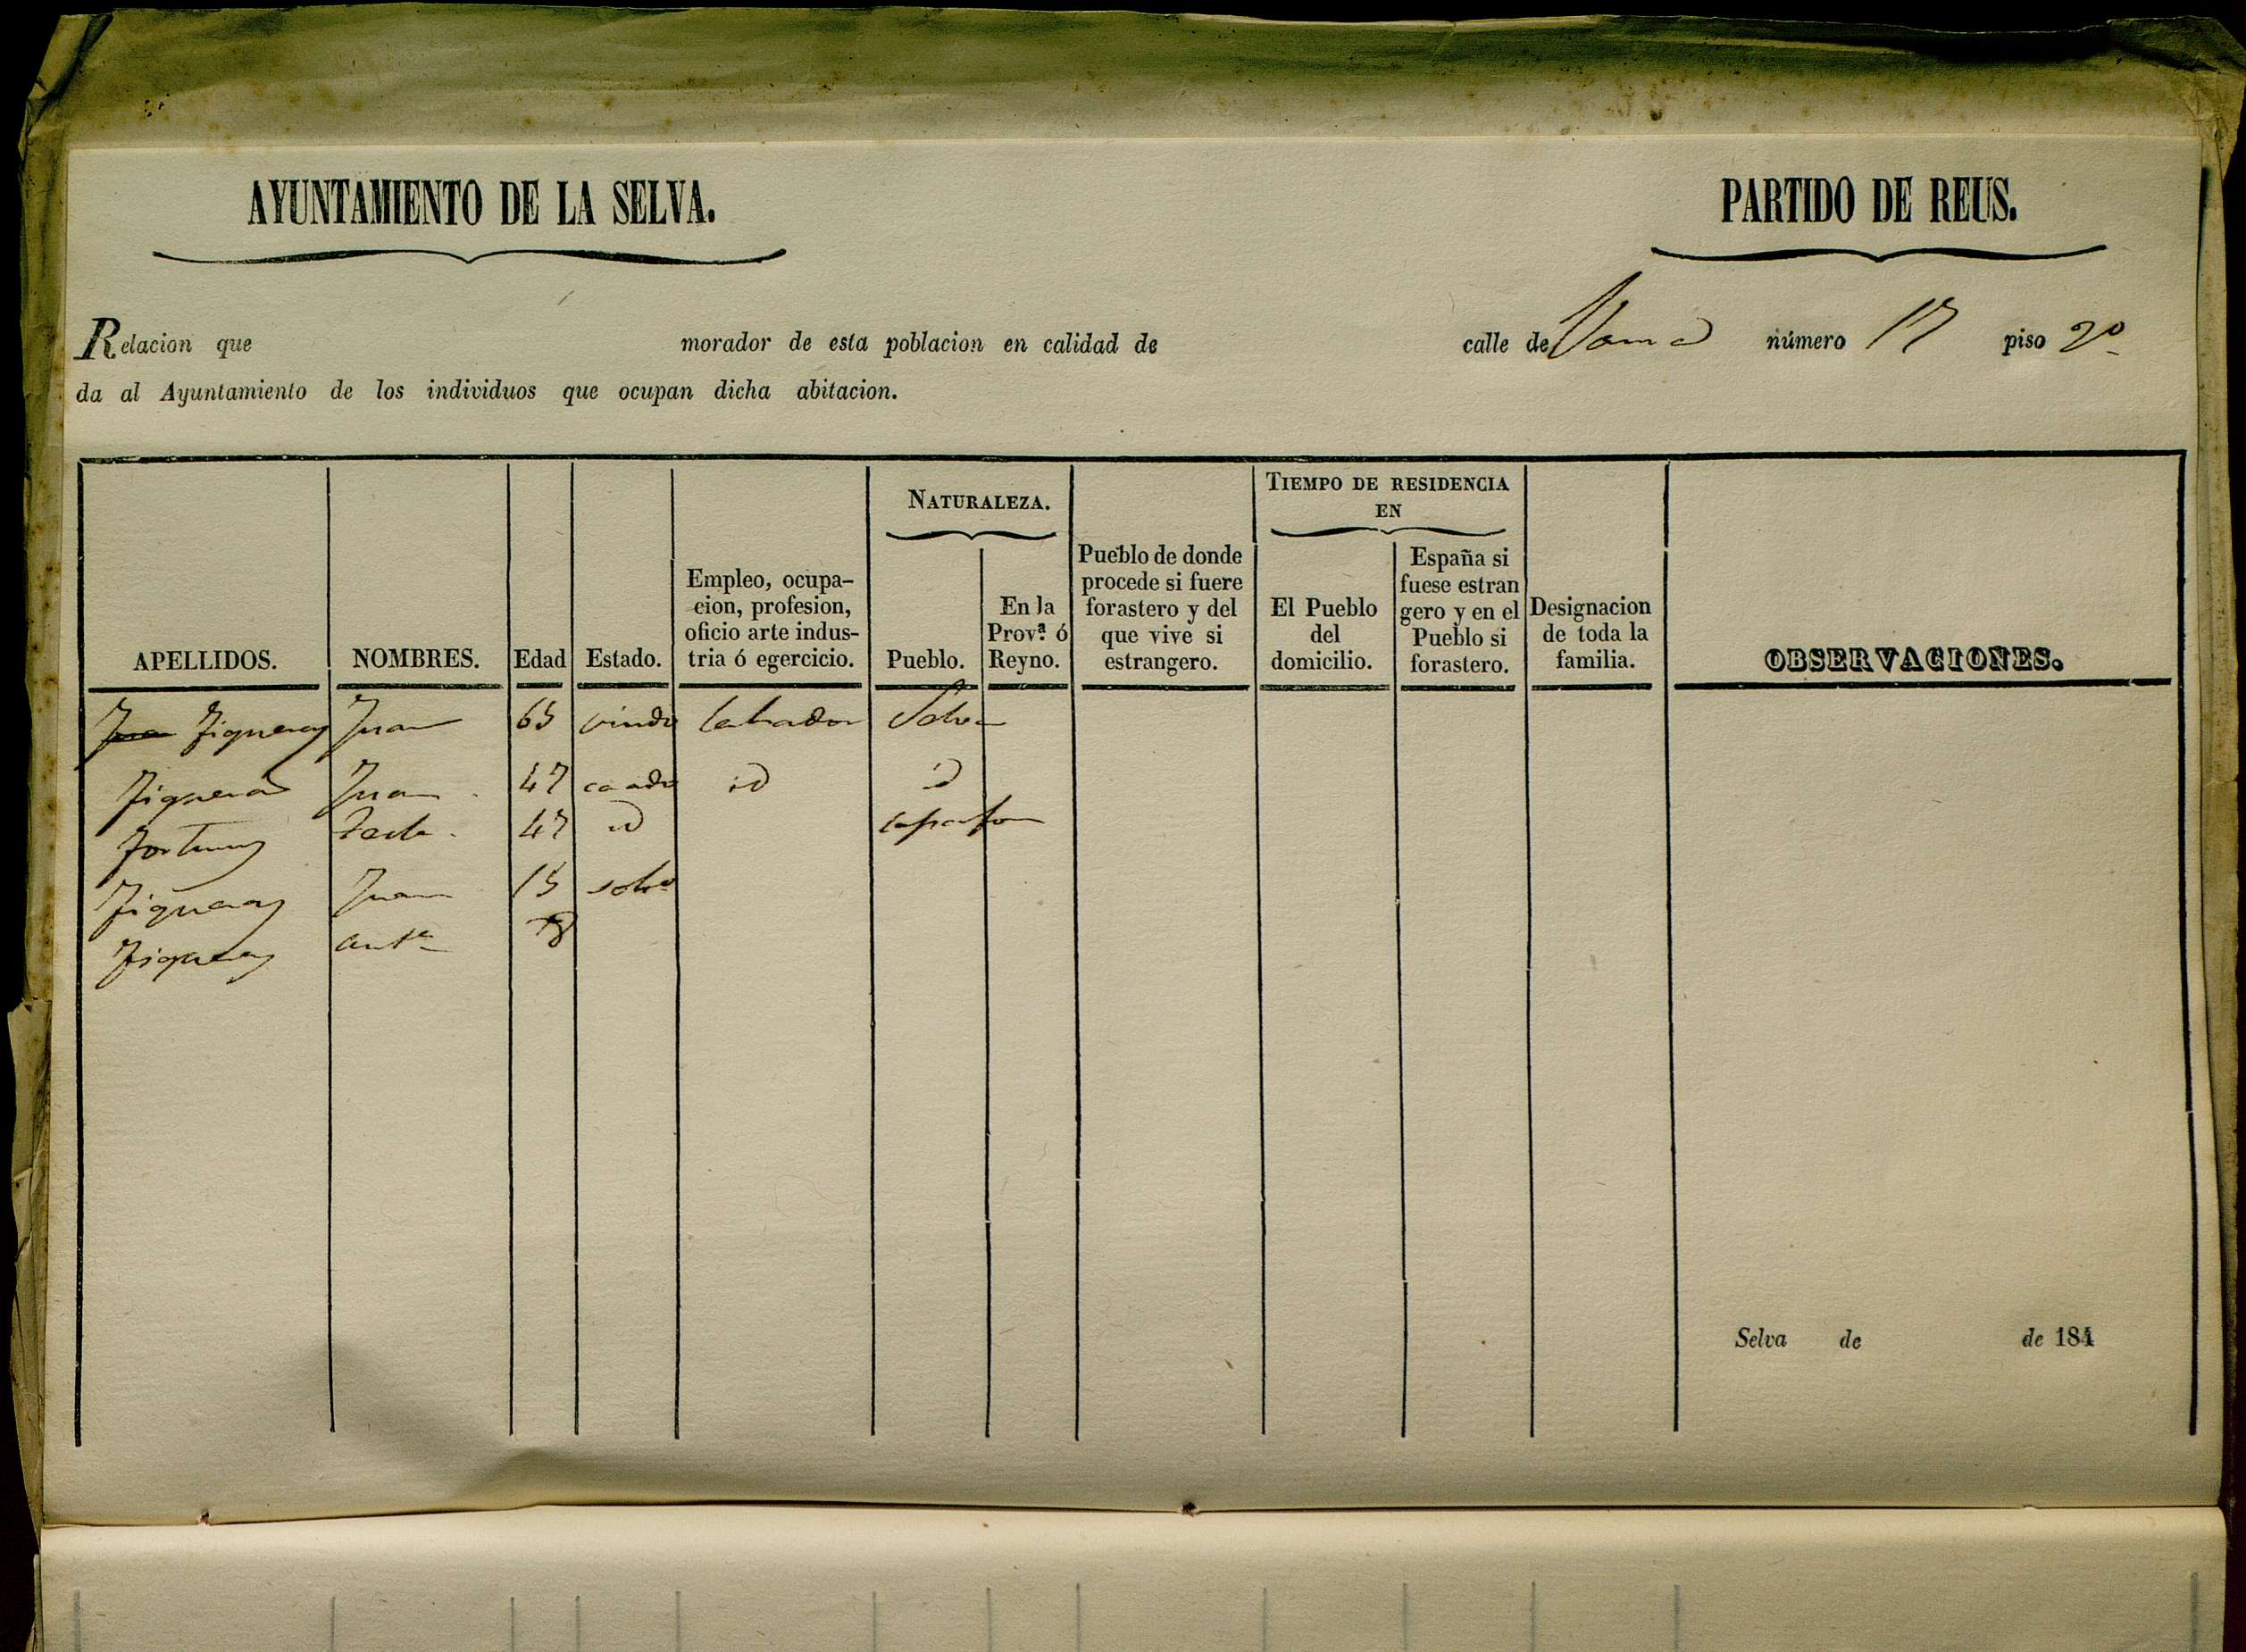 AYUNTAMIENTO DE LA SELVA. PARTIDO DE REUS.
Relacion que morador de esta poblacion en calidad de calle de número 17 piso 2º
da al Ayuntamiento de los individuos que ocupan dicha abitacion.
APELLIDOS.
NOMBRES.
Edad
Estado.
Empleo, ocupa-
cion, profesion,
oficio arte indus-
tria ó egercicio.
NATURALEZA.
Pueblo.
En la
Prov.ª ó
Reyno.
Pueblo de donde
procede si fuere
forastero y del
que vive si
estrangero.
TIEMPO DE RESIDENCIA
EN
El Pueblo
del
domicilio.
España si
fuese estran
gero y en el
Pueblo si
forastero.
Designacion
de toda la
familia.
OBSERVACIONES.
Juan Figueras Juan 65 viudo labrador Selva
Figueras Juan 47 casado id id
Fortuny Tecla 47 id
Figueras Juan 15 solto
Figueras Antª 8
Selva de de 184